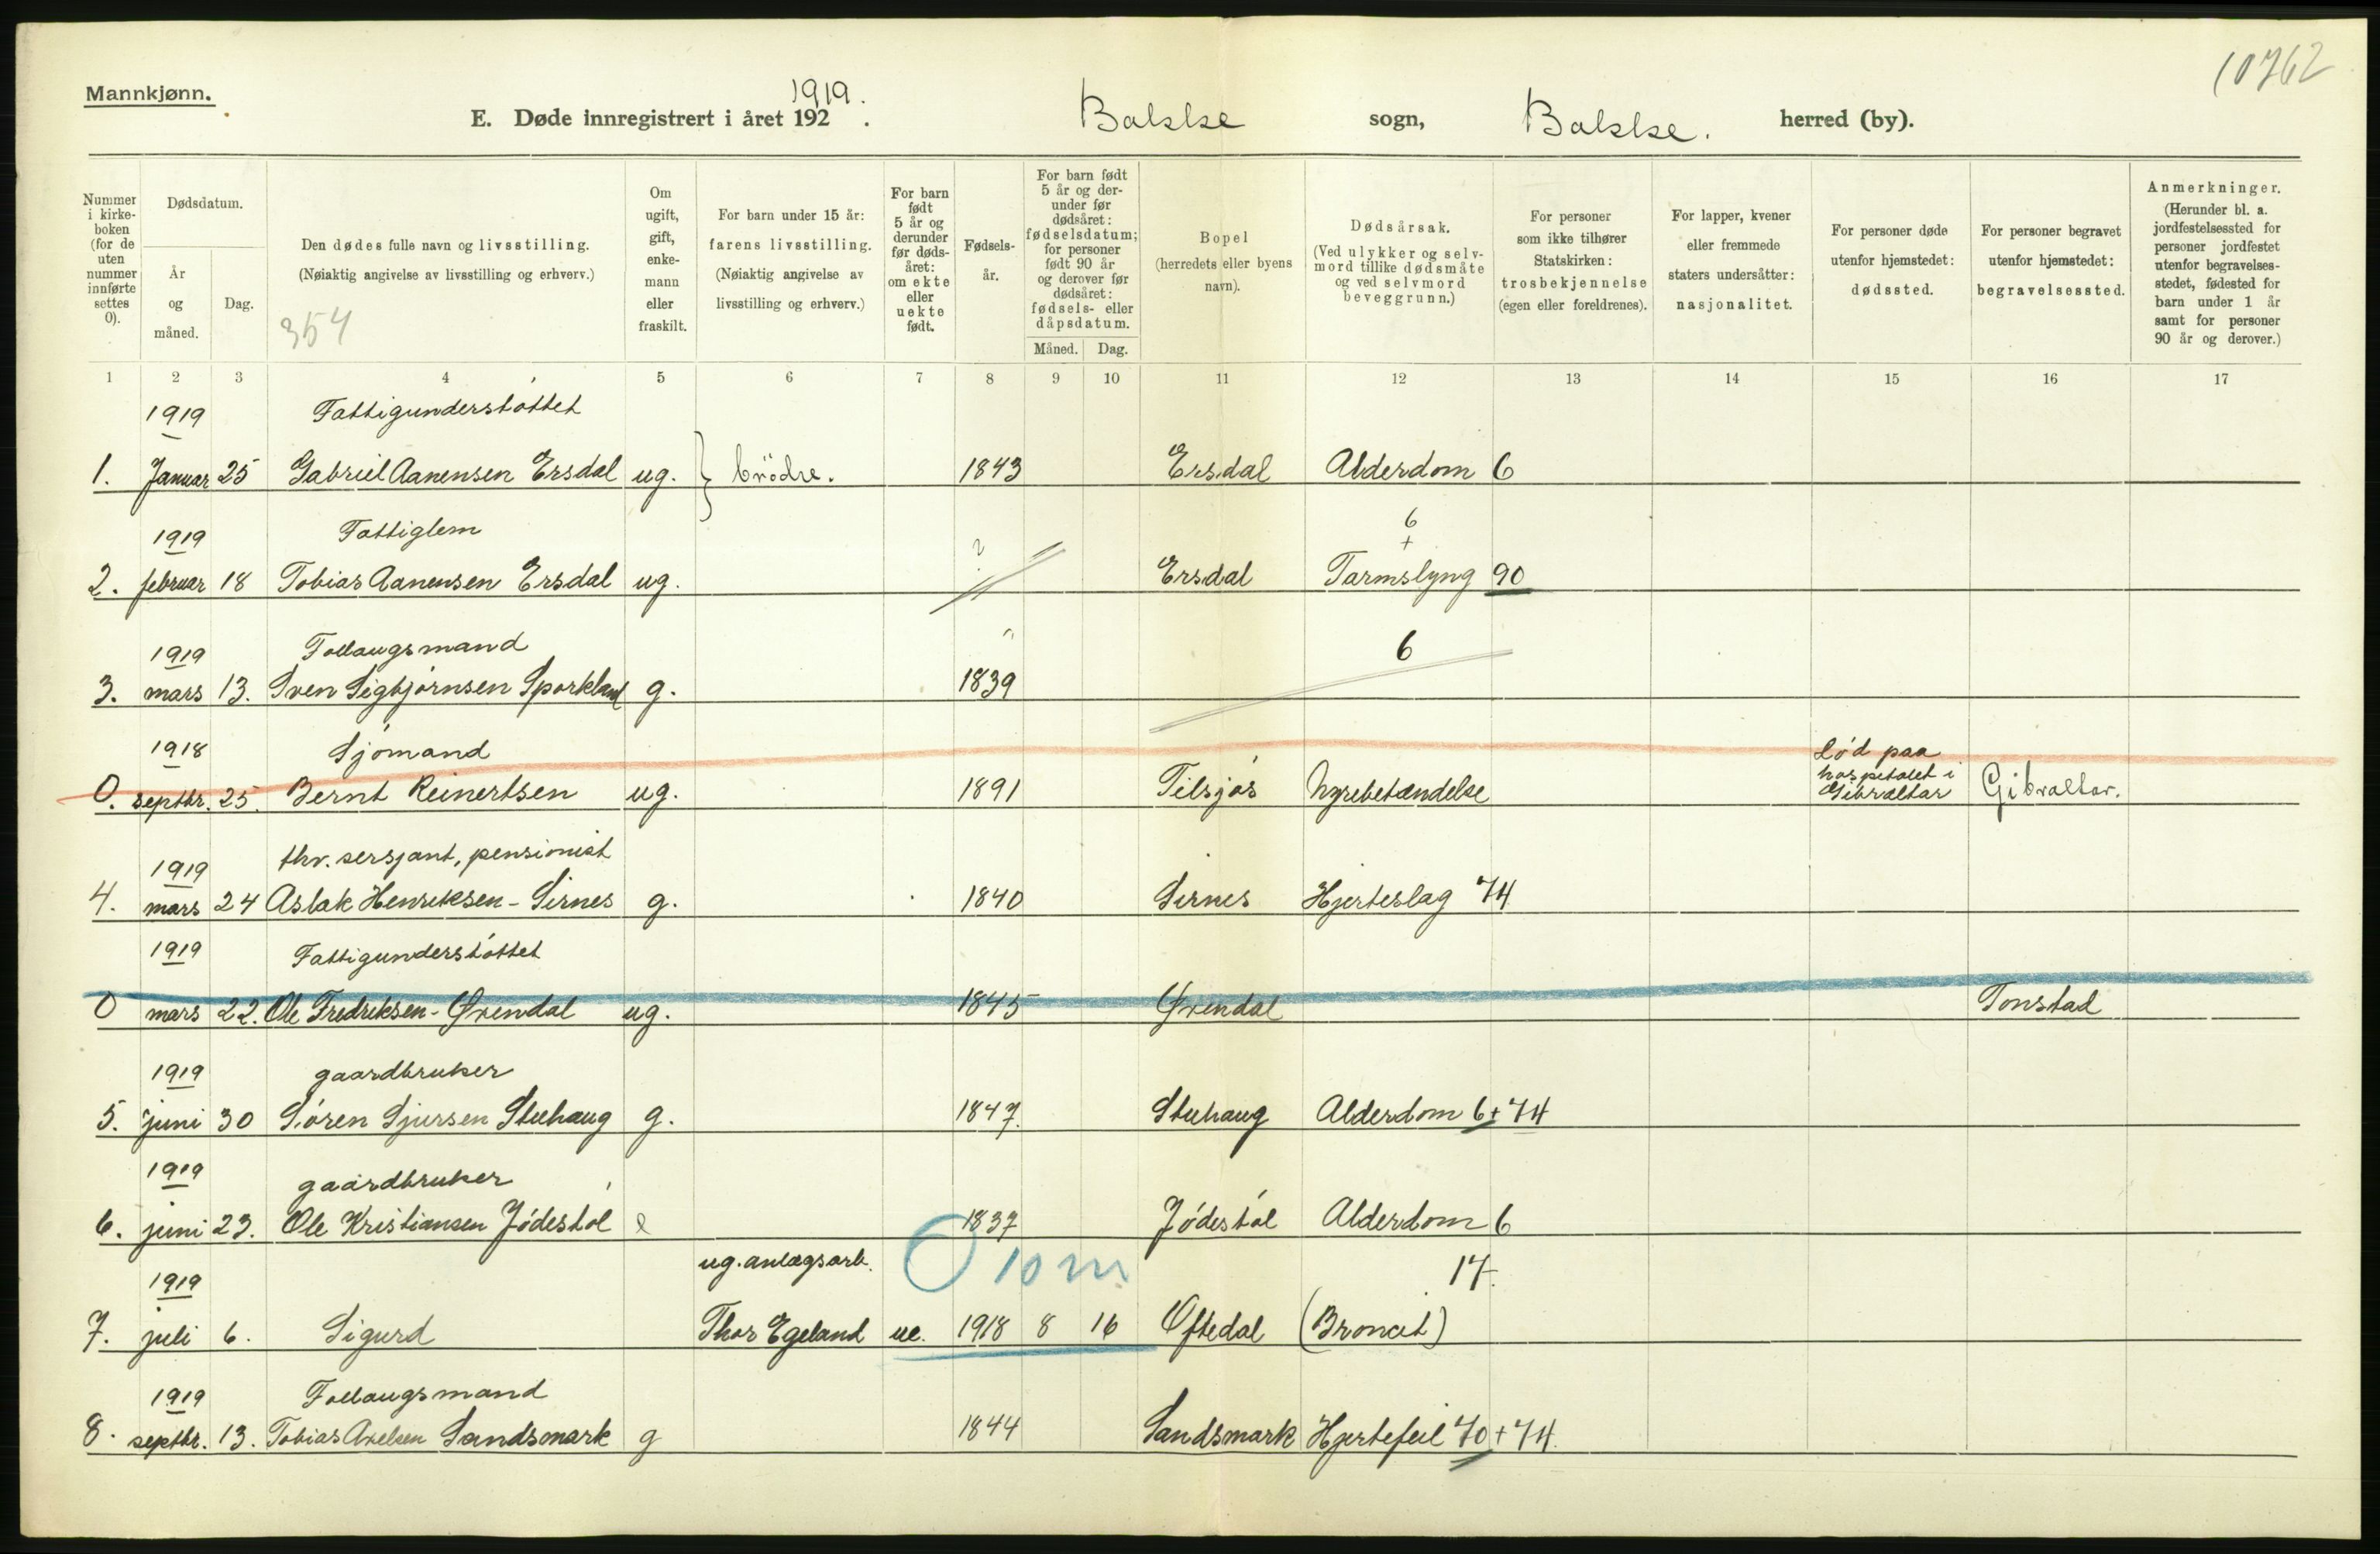 10762
Mannkjønn.
1919.
E. Døde innregistrert i året 192 . Bakke sogn, Bakke. herred (by).
Nummer i kirkeboken (for de uten nummer innførte settes 0).
Dødsdatum.
År og måned.
Dag.
Den dødes fulle navn og livsstilling.
(Nøiaktig angivelse av livsstilling og erhverv.)
354
Om ugift, gift, enkemann eller fraskilt.
For barn under 15 år: farens livsstilling.
(Nøiaktig angivelse av livsstilling og erhverv.)
For barn født 5 år og derunder før dødsåret: om ekte eller uekte født.
Fødselsår.
For barn født 5 år og derunder før dødsåret: fødselsdatum; for personer født 90 år og derover før dødsåret: fødsels- eller dåpsdatum.
Måned. Dag.
Bopel
(herredets eller byens navn).
Dødsårsak.
(Ved ulykker og selvmord tillike dødsmåte og ved selvmord beveggrunn.)
For personer som ikke tilhører Statskirken: trosbekjennelse (egen eller foreldrenes).
For lapper, kvener eller fremmede staters undersåtter: nasjonalitet.
For personer døde utenfor hjemstedet: dødssted.
For personer begravet utenfor hjemstedet: begravelsessted.
Anmerkninger.
(Herunder bl. a. jordfestelsessted for personer jordfestet utenfor begravelsesstedet, fødested for barn under 1 år samt for personer 90 år og derover.)
1 2 3 4 5 6 7 8 9 10 11 12 13 14 15 16 17
1919 Fattigunderstøttet
1. Januar 25 Gabriel Aanensen Ersdal ug. } brödre. 1843 Ersdal Alderdom 6
1919 Fattiglem ? 6 +
2. februar 18 Tobias Aanensen Ersdal ug. Ersdal Tarmslyng 90
1919 Follaugsmand 6
3. mars 13. Sven Sigbjørnsen Sporkland g. 1839
1918 Sjømand Død paa
hospitalet i
0. septbr. 25. Bernt Reinertsen ug. 1891 Tilsjøs Nyrebetændelse Gibraltar Gibraltar.
1919 fhv. sersjant, pensionist
4. mars 24 Aslak Henriksen - Sirnes g. 1840 Sirnes Hjerteslag 74
1919 Fattigunderstøttet
0 mars 22. Ole Fredriksen - Øvendal ug. 1845 Øvendal Tonstad
1919 gaardbruker
5. juni 30 Søren Sjursen Stuhaug g. 1847. Stuhaug Alderdom 6+74
1919 gaardbruker
6. juni 23. Ole Kristiansen Jødestøl e 1837 Jødestøl Alderdom 6
1919 ug. anlægsarb. 10 m 17.
7. juli 6. Sigurd Thor Egeland ue. 1918 8 16 Oftedal (Broncit)
1919 Follaugsmand
8. septbr. 13. Tobias Axelsen Sandsmark g 1844 Sandsmark Hjertefeil 70+74.